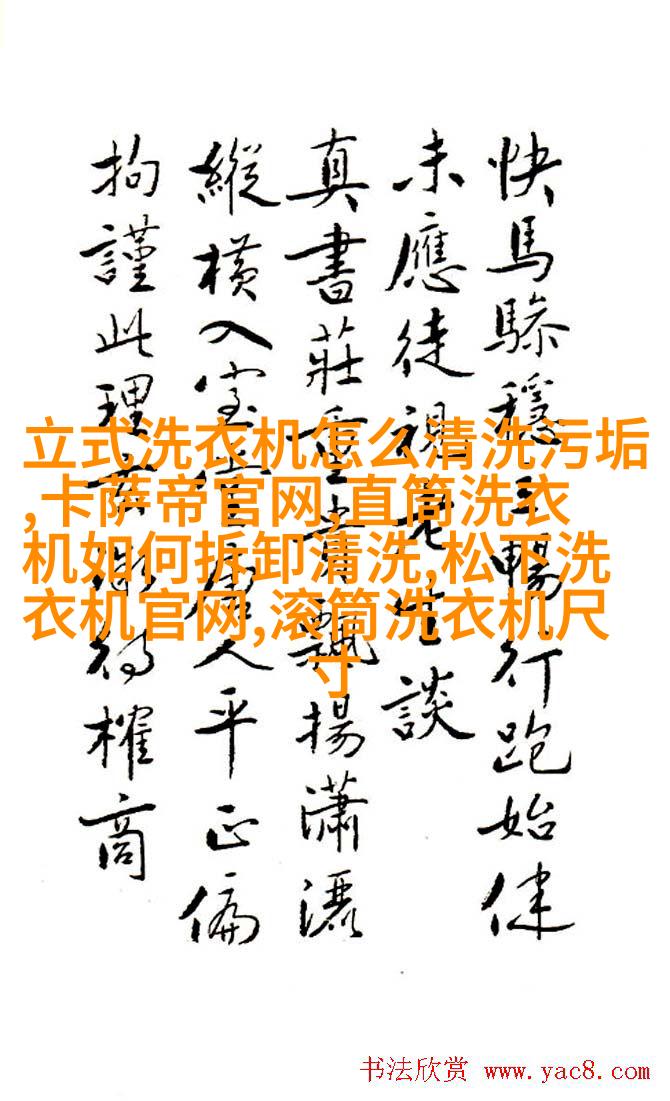 快馬穩暢行跑始
未應徒視老生談
真書莊重貴飄揚瀟灑
縱橫入室唐人平正偏
拘謹此理玄微待榷商
立式洗衣机怎么清洗污垢
,卡萨帝官网,直筒洗衣
机如何拆卸清洗,松下洗
衣机官网,滚筒洗衣机尺
寸
书法欣赏 www.yac8.com